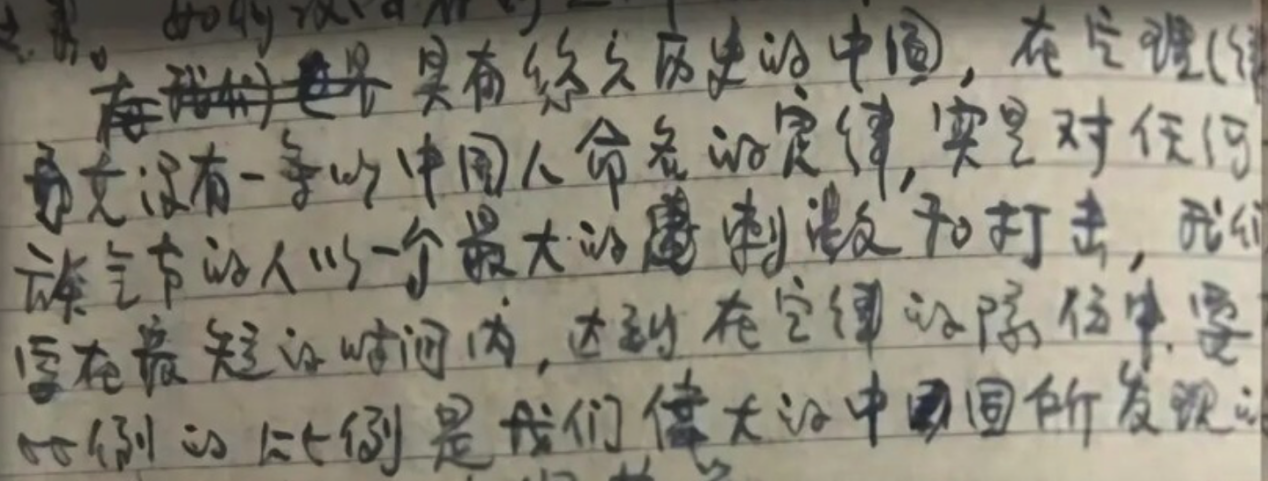 具有悠久历史的中国，在定理(律
竟然没有一条以中国人命名的定律，实是对任何
族气节的人以一个最大的刺激和打击，我们
要在最短的时间内，达到在定律的队伍中，要
比例的比例是我们偉大的中国所发现的